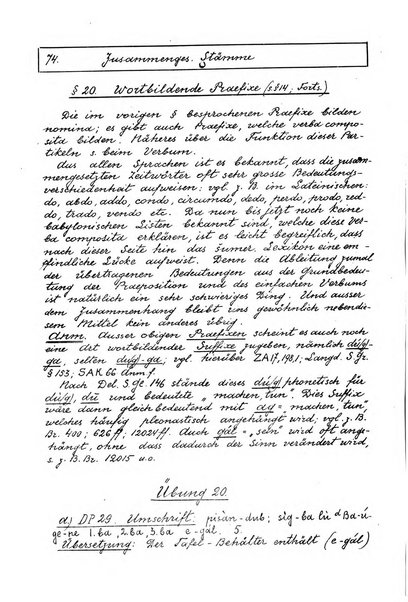 74. Zusammenges. Stämme
§ 20. Wortbildende Praefixe (s. § 14; Forts.)
Die im vorigen § besprochenen Praefixe bilden
nomina; es gibt auch Praefixe, welche verba compo-
sita bilden. Näheres über die Funktion dieser Par-
tikeln s. beim Verbum.
Aus allen Sprachen ist es bekannt, dass die zusam-
mengesetzten Zeitwörter oft sehr grosse Bedeutungs-
verschiedenheit aufweisen: vgl. z. B. im Lateinischen:
do, abdo, addo, condo, circumdo, dedo, perdo, prodo, red-
do, trado, vendo etc. Da nun bis jetzt noch keine
babylonischen Listen bekannt sind, welche diese Ver-
ba composita erklären, ist es leicht begreiflich, dass
nach dieser Seite hin das sumer. Lexikon eine em-
pfindliche Lücke aufweist. Denn die Ableitung zumal
der übertragenen Bedeutungen aus der Grundbedeu-
tung der Praeposition und des einfachen Verbums
ist natürlich ein sehr schwieriges Ding. Und ausser
dem Zusammenhang bleibt uns gewöhnlich nebendie-
sem Mittel kein anderes übrig.
Anm. Ausser obigen Praefixen scheint es auch noch
eine Art wortbildender Suffixe zu geben, nämlich
ga, selten vgl. hierüber ZA 17, 198,1; Langd. S. Gr.
§ 153; SAK 66 Anm f.
Nach Del. S. Gr. 146 stände dieses phonetisch für
und bedeutete „machen, tun". Dies Suffix
wäre dann gleichbedeutend mit = machen, tun"
welches häufig pleonastisch angehängt wird; vgl. z. B.
Br. 400; 626 ff; 12024 ff. Auch gál = „sein" wird oft ange-
hängt, ohne dass dadurch der Sinn verändert wird,
s. z. B. Br. 12015 u. o.
Übung 20.
a) DP 29 Umschrift: pisàn-dub; síg-ba lù ᵈBa-ú-
ge-ne 1. ba, 2. ba, 3. ba e-gál. 5.
Übersetzung: Der Tafel-Behälter enthält (e-gál)